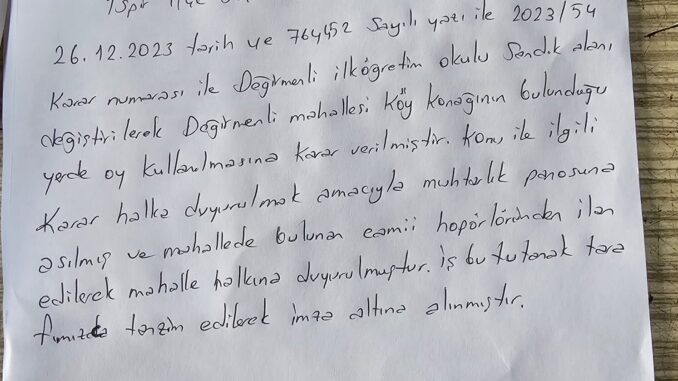 İspir ilçe
26.12.2023 tarih ve 764452 Sayılı yazı ile 2023/54
Karar numarası ile Değirmenli ilköğretim okulu Sandık alanı
değiştirilerek Değirmenli mahallesi Köy Konağının bulunduğu
yerde oy kullanılmasına karar verilmiştir. Konu ile ilgili
Karar halka duyurulmak amacıyla muhtarlık panosuna
asılmış ve mahallede bulunan camii hopörlöründen ilan
edilerek mahalle halkına duyurulmuştur. İş bu tutanak tara
fımızda tanzim edilerek imza altına alınmıştır.